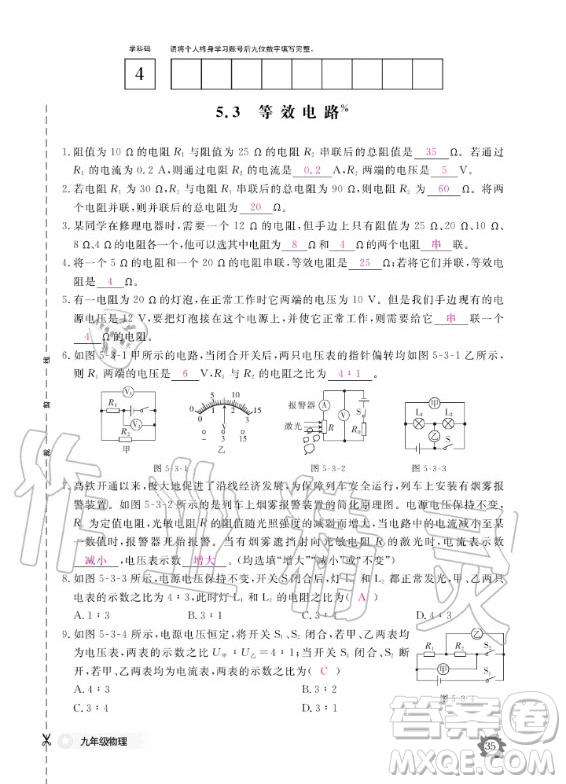 学科码 请将个人终身学习账号后九位数字填写完整。
4
5.3 等效电路%
1. 阻值为 10 Ω 的电阻 R₁ 与阻值为 25 Ω 的电阻 R₂ 串联后的总阻值是 35 Ω。若通过
R₁ 的电流为 0.2 A,则通过电阻 R₂ 的电流是 0.2 A,R₂ 两端的电压是 5 V。
2. 若电阻 R₁ 为 30 Ω,与电阻 R₂ 串联后的总电阻为 90 Ω,则电阻 R₂ 为 60 Ω。将两
个电阻并联,并联后的总电阻是 20 Ω。
3. 某同学在修理电器时,需要一个 12 Ω 的电阻,但手边上只有多个阻值分别为 10 Ω、
8 Ω、4 Ω 的电阻各一个,他可以选其中电阻为 8 Ω 和 4 Ω 的两个电阻 串 联。
4. 将一个 5 Ω 的电阻和一个 20 Ω 的电阻串联,总电阻是 25 Ω;若将它们并联,则
总电阻是 4 Ω。
5. 有一电阻为 20 Ω 的灯泡,在正常工作时它两端的电压为 10 V。但是我们手边只有电压为
12 V,要把灯泡接在这个电源上,并正常工作,应给它 串 联
6. 如图 5-3-1 甲所示的电路,当闭合开关后,两个电压表的指针偏转均如图 5-3-1 乙所示,
则 R₁ 两端的电压为 6 V,R₁ 与 R₂ 的电阻之比为 4∶1 。
V₁
R₁
R₂
V₂
甲
0 1 2 3
0 5 10 15
3 15
乙
报警器
激光
A
S
R
V
R₀
甲
L₁
L₂
乙
S
图 5-3-1 图 5-3-2 图 5-3-3
7. 高铁开通以来,极大地促了沿线经济发展,为保障列车安全运行,列车上安装有烟雾报
警装置。图 5-3-2 所示为列车上烟雾报警装置的简化原理图。电源电压保持不变,
R₀ 为定值电阻,光敏电阻 R 的阻值随光照强度的减弱而增大,当电路中的电流减小至
一定值时,报警器开始报警。当有烟雾遮挡射向光敏电阻 R 的激光时,电流表示数
减小 ,电压表示数 增大 。(均选填“增大”“减小”或“不变”)
8. 如图 5-3-3 所示,电源电压保持不变,闭合开关后,灯 L₁ 和 L₂ 都正常发光,甲、乙两
电表的示数之比为 4∶3,此时灯 L₁ 和 L₂ 的电阻之比为( A )
A. 1∶3 B. 3∶1 C. 3∶4 D. 4∶3
9. 如图 5-3-4 所示,电源电压恒定,将开关 S₁、S₂ 闭合,若甲、乙两表均
为电压表,两表示数之比 U甲∶U乙=4∶1;当开关 S₁ 闭合、S₂
断开,若甲、乙两表均为电流表,则两表的示数之比为( C )
A. 4∶3 B. 4∶1
C. 3∶1 D. 3∶4
乙
甲
九年级物理
35